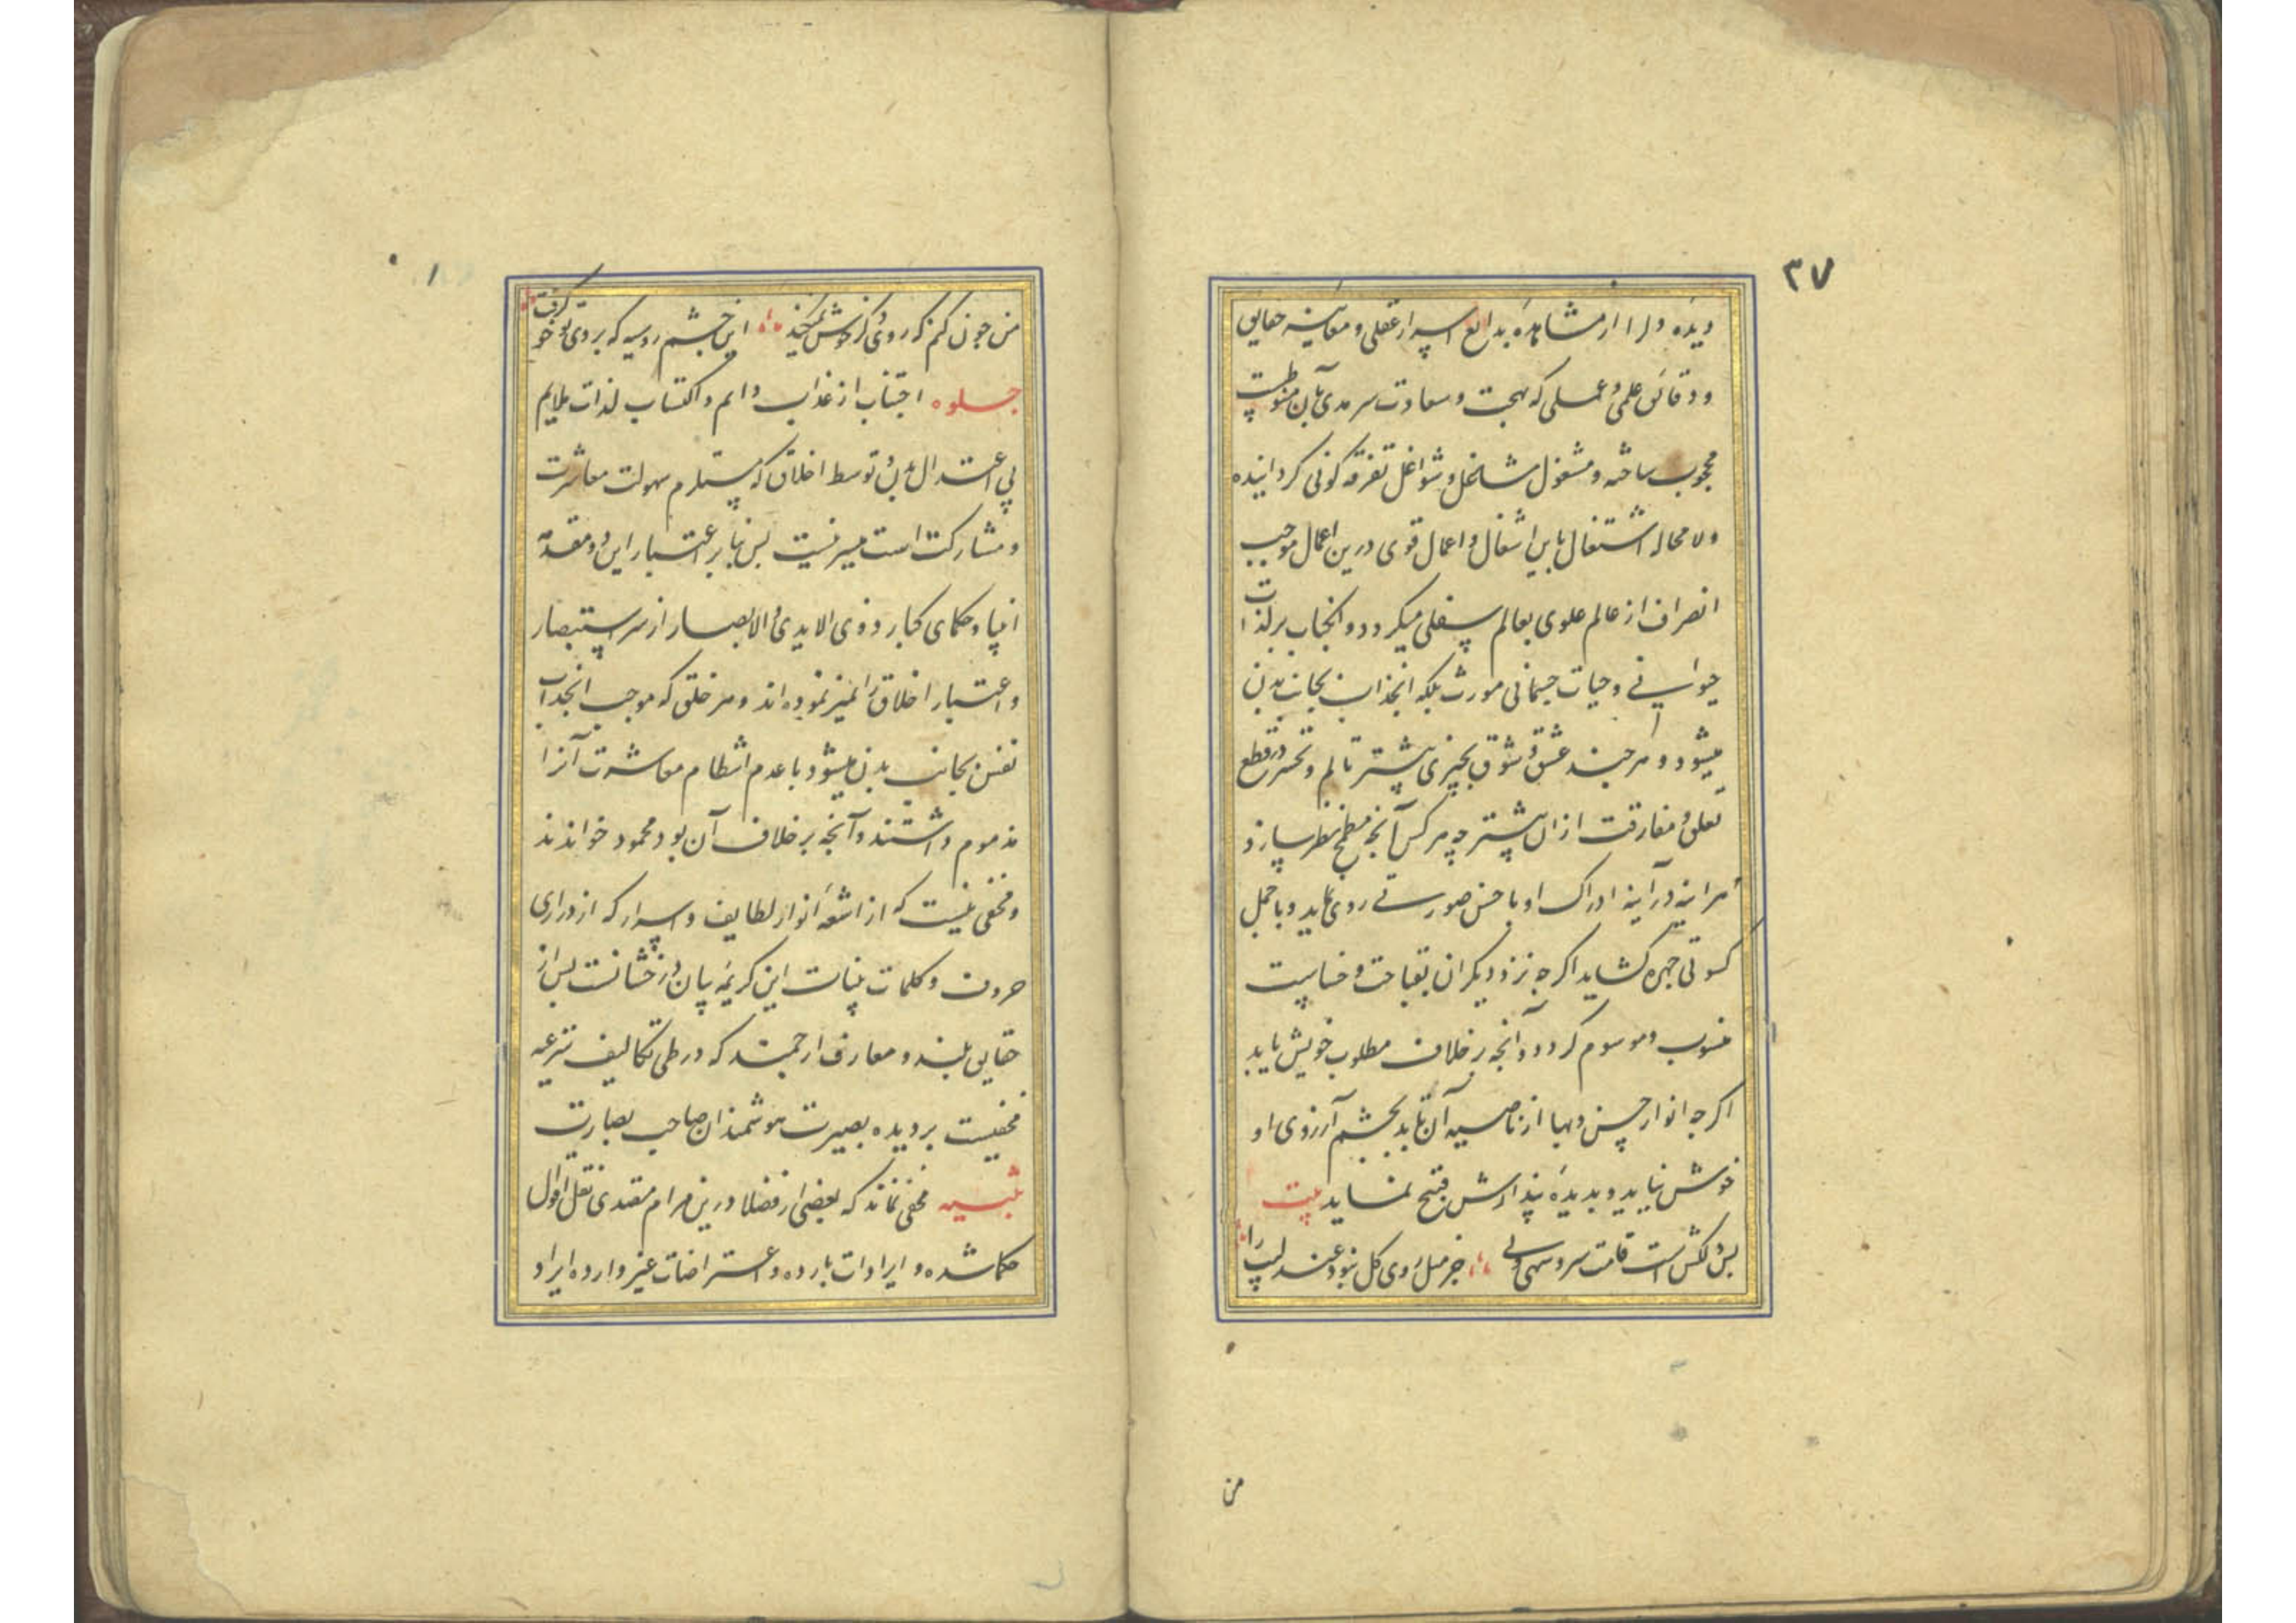 ۳۷
دیده دل را از مشاهدهٔ بدایع اسرار عقلی و معاینه حقایق
و دقائق علمی و عملی که بهجت و سعادت سرمدی بآن منوطست
محجوب ساخته و مشغول مشاغل و شواغل تفرقه کونی کردانیده
ولا محاله اشتغال باین اشغال و اعمال قوی درین اعمال موجب
انصراف از عالم علوی بعالم سفلی میکردد و انجذاب بر لذات
حیوانی و حیات جسمانی مورث بلکه انجذاب بجانب بدن
میشود و هر چند عشق و شوق بچیزی بیشتر تالم و تحسر در قطع
تعلق و مفارقت ازان بیشتر چه هر کس آنچه مطمح نظر سازد
هر اینه در آینه ادراک او باحسن صورتی روی نماید و باجمل
کسوتی چهره کشاید اکرچه نزد دیکران بقباحت و خساست
منسوب و موسوم کردد و آنچه بر خلاف مطلوب خویش یابد
اکرچه انوار حسن و بها از ناصیه آن تابد بچشم آرزوی او
خوش نیاید و بدیدهٔ پندارش قبیح نماید بیت
بس دلکش است قامت سرو سهی ولی جز میل روی کل نبود عندلیب را
من
من چون کنم که روی دکر خوش نمیکند این چشم رو سیه که بروی تو خو کرفت
جلوه اجتناب از عذاب دایم و اکتساب لذات ملایم
بی اعتدال بدن و توسط اخلاق که مستلزم سهولت معاشرت
و مشارکت است میسر نیست پس بنا بر اعتبار این دو مقدمه
انبیا و حکمای کبار ذوی الایدی و الابصار از سر استبصار
و اعتبار اخلاق را تمیز نموده اند و هر خلقی که موجب انجذاب
نفس بجانب بدن میشود با عدم انتظام معاشرت آنرا
مذموم داشتند و آنچه بر خلاف آن بود محمود خواندند
و مخفی نیست که از اشعهٔ انوار لطایف و اسرار که از دراری
حروف و کلمات بینات این کریمهٔ بیان درخشانست پس از
حقایق بلند و معارف ارجمند که در طی تکالیف شرعیه
مخفیست بر دیده بصیرت هوشمندان صاحب بصارت
تنبیه مخفی نماند که بعضی از فضلا درین مرام مقتدی نقل اقوال
حکما شده و ایرادات بارده و اعتراضات غیر وارده ایراد